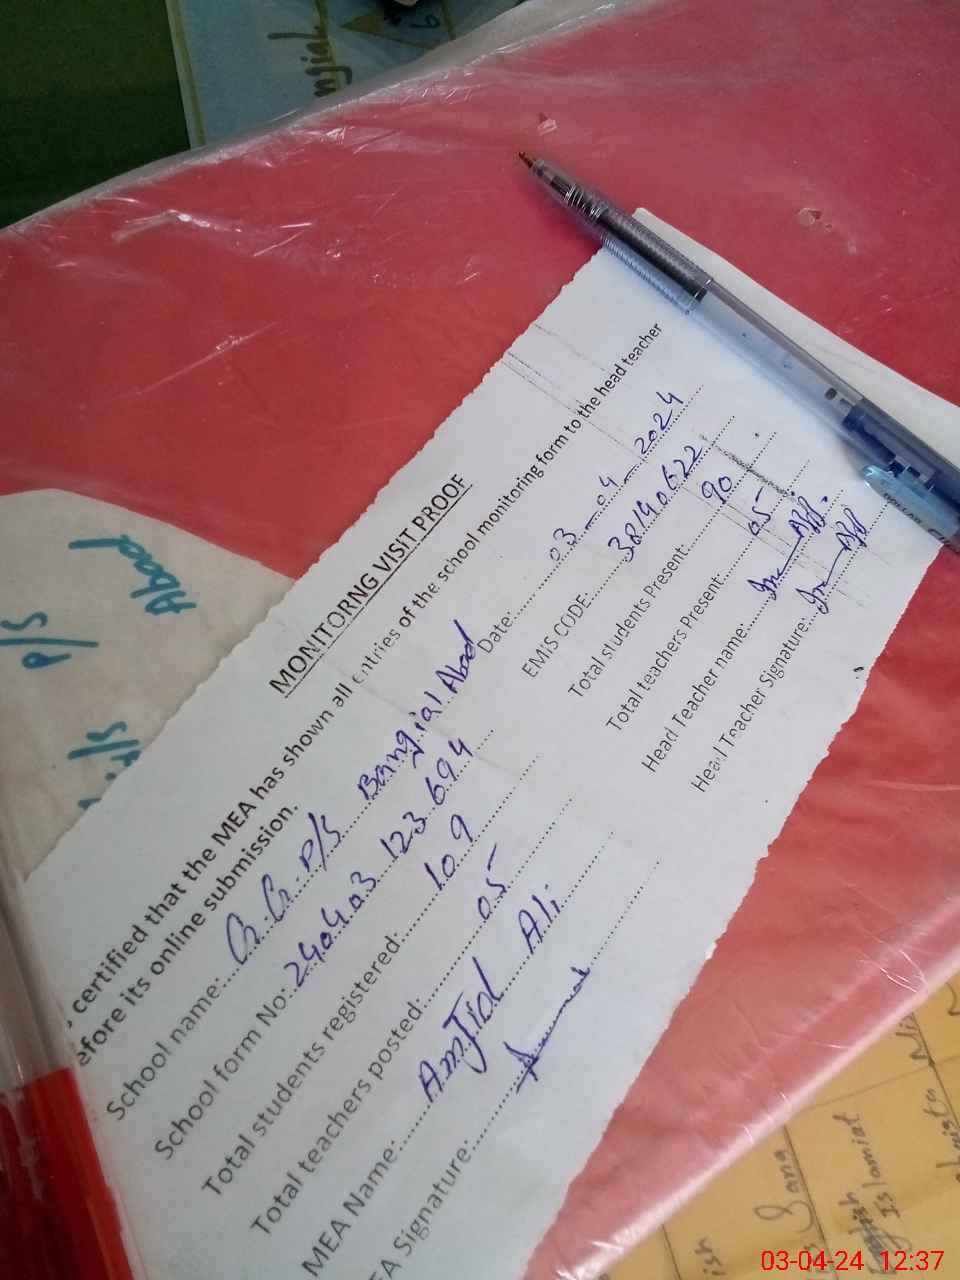 MONITORNG VISIT PROOF
certified that the MEA has shown all entries of the school monitoring form to the head teacher
efore its online submission.
School name: G.G.P/S Bangial Abad Date: 03-04-2024
School form No: 240403 123 694 EMIS CODE: 38140622
Total students registered: 109 Total students Present: 90
Total teachers posted: 05 Total teachers Present: 05
MEA Name: Amjid Ali Head Teacher name:
A Signature: Head Teacher Signature:
Abad
P/S
Islamiat
03-04-24 12:37